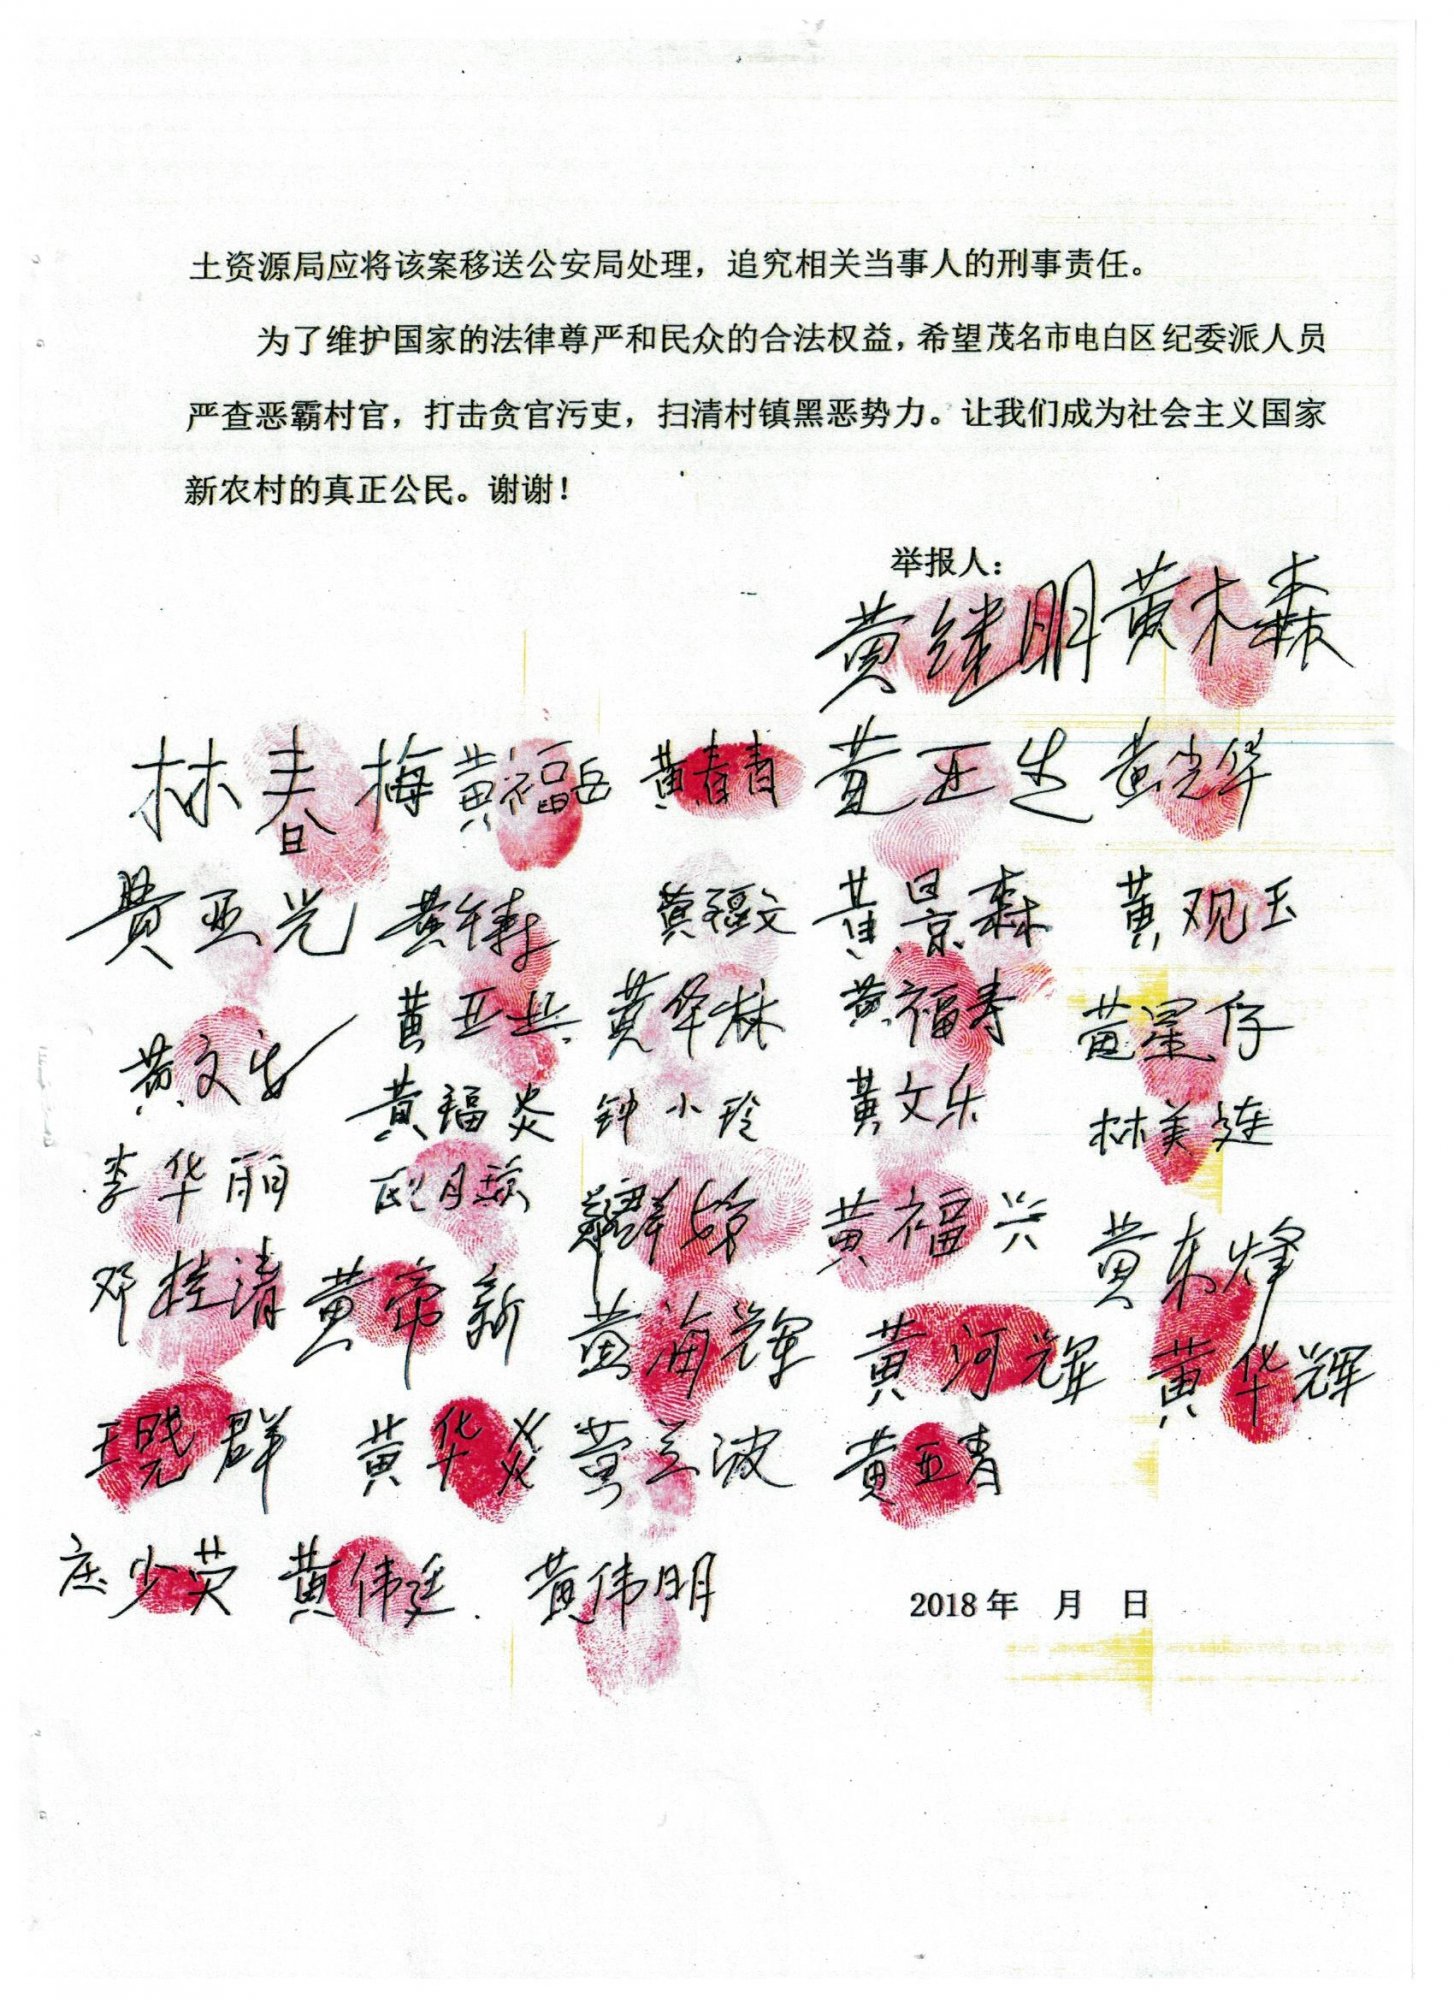 土资源局应将该案移送公安局处理，追究相关当事人的刑事责任。
为了维护国家的法律尊严和民众的合法权益，希望茂名市电白区纪委派人员
严查恶霸村官，打击贪官污吏，扫清村镇黑恶势力。让我们成为社会主义国家
新农村的真正公民。谢谢！
举报人：
黄继明 黄木森
林春梅 黄福岳 黄春青 黄亚生 黄光华
黄亚光 黄福文 黄景森 黄观玉
黄亚兴 黄华林 黄福寿 黄星仔
黄文安
黄福炎 钟小玲 黄文乐 林美连
李华丽 黄福兴 黄东烽
邓桂清 黄帝新 黄海辉 黄河辉 黄华辉
王晓群 黄华炎 黄兰波 黄亚青
庄少荧 黄伟廷 黄伟明
2018年 月 日